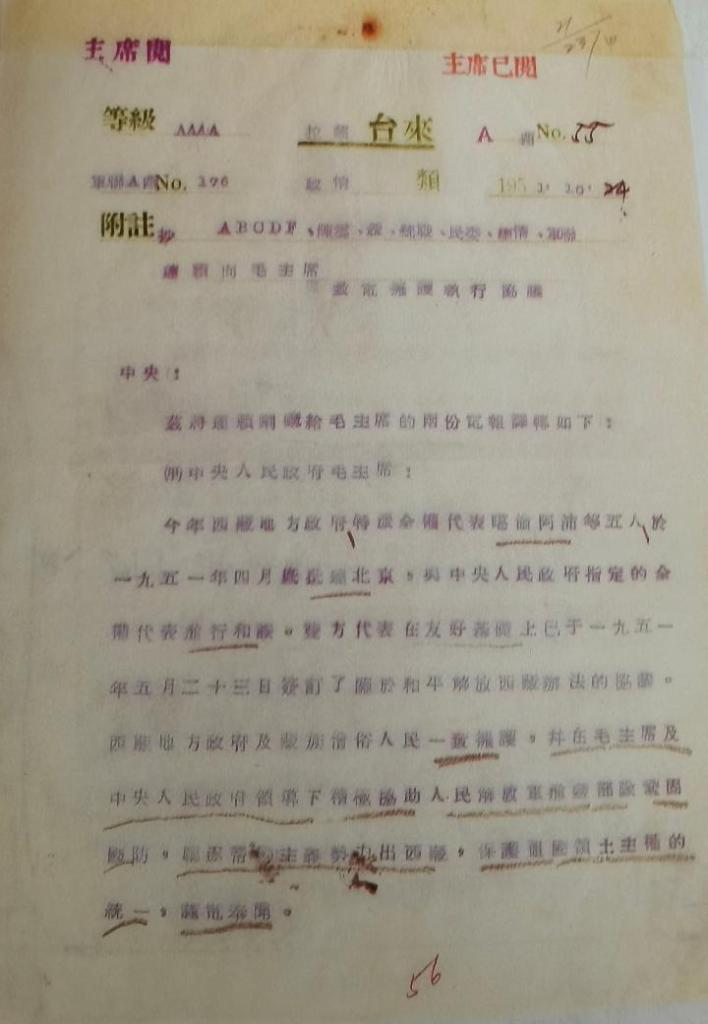 主席閱 主席已閱
等級 AAAA 拉薩 台來 A 密No. 55
軍聯A密No. 176 政情 類 195 1. 10. 24
附註 抄 ABCDF、陳雲、統戰、民委、軍聯
達賴向毛主席
致電擁護執行協議
中央：
茲將達賴喇嘛給毛主席的兩份電報譯轉如下：
中央人民政府毛主席：
今年西藏地方政府特派全權代表噶倫阿沛等五人於
一九五一年四月底抵達北京，與中央人民政府指定的全
權代表進行和談。雙方代表在友好基礎上已于一九五一
年五月二十三日簽訂了關於和平解放西藏辦法的協議。
西藏地方政府及藏族僧俗人民一致擁護，并在毛主席及
中央人民政府領導下積極協助人民解放軍進藏部隊鞏固
國防，驅逐帝國主義勢力出西藏，保護祖國領土主權的
統一，謹電奉聞。
56